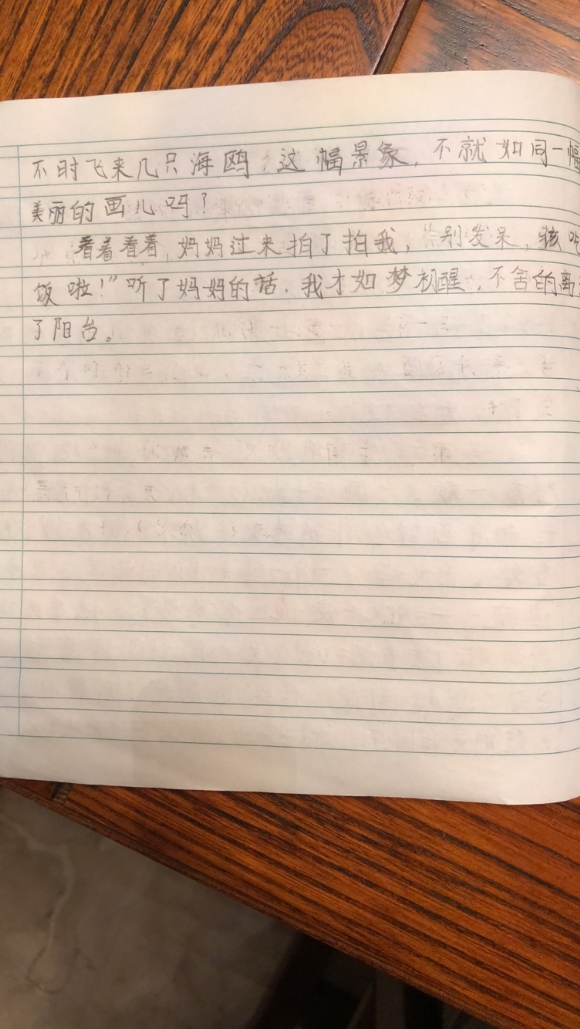 不时飞来几只海鸥,这幅景象,不就如同一幅
美丽的画儿吗?
看着看着,妈妈过来拍了拍我,“别发呆,该吃
饭啦!”听了妈妈的话,我才如梦初醒,不舍的离
了阳台。